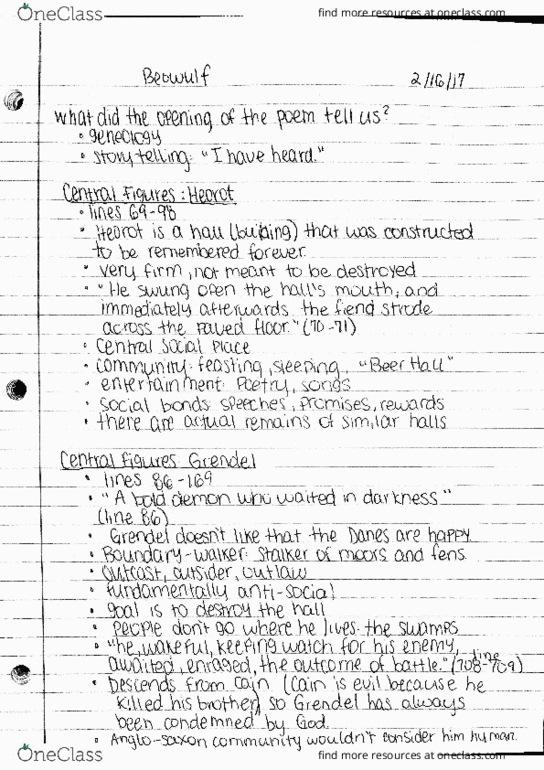 OneClass
find more resources at oneclass.com
Beowulf
2/16/17
what did the opening of the poem tell us?
• geneology
• story telling: "I have heard."
Central Figures: Heorot
• lines 69-98
• Heorot is a hall (building) that was constructed
to be remembered forever
• very firm, not meant to be destroyed
• "He swung open the hall's mouth, and
immediately afterwards the fiend strode
across the paved floor." (70-71)
• central social place
• community: feasting, sleeping, "Beer Hall"
• entertainment: Poetry, songs
• social bonds: speeches, promises, rewards
• there are actual remains of similar halls
Central figures Grendel
• lines 86-169
• "A bold demon who waited in darkness"
(line 86)
• Grendel doesn't like that the Danes are happy
• Boundary-walker: Stalker of moors and fens
• outcast, outsider, outlaw
• fundamentally anti-social
• goal is to destroy the hall
• People don't go where he lives: the swamps
• "he, wakeful, keeping watch for his enemy,
awaited, enraged, the outcome of battle." (line 708-709)
• Descends from Cain (Cain is evil because he
killed his brother) so Grendel has always
been condemned by God
• Anglo-saxon community wouldn't consider him human.
OneClass
find more resources at oneclass.com